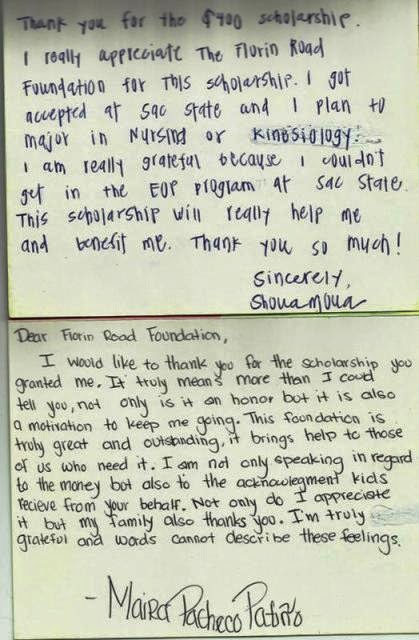 Thank you for the $900 scholarship.
I really appreciate The Florin Road
Foundation for This scholarship. I got
accepted at Sac State and I plan to
major in Nursing or Kinesiology.
I am really grateful because I couldn't
get in the EOP program at Sac State.
This scholarship will really help me
and benefit me. Thank you so much!
Sincerely,
Shoua Moua
Dear Florin Road Foundation,
I would like to thank you for the scholarship you
granted me. It truly means more than I could
tell you, not only is it an honor but it is also
a motivation to keep me going. This foundation is
truly great and outstanding, it brings help to those
of us who need it. I am not only speaking in regard
to the money but also to the acknowlegment kids
recieve from your behalf. Not only do I appreciate
it but my family also thanks you. I'm truly
grateful and words cannot describe these feelings.
- Maira Pacheco Patiño